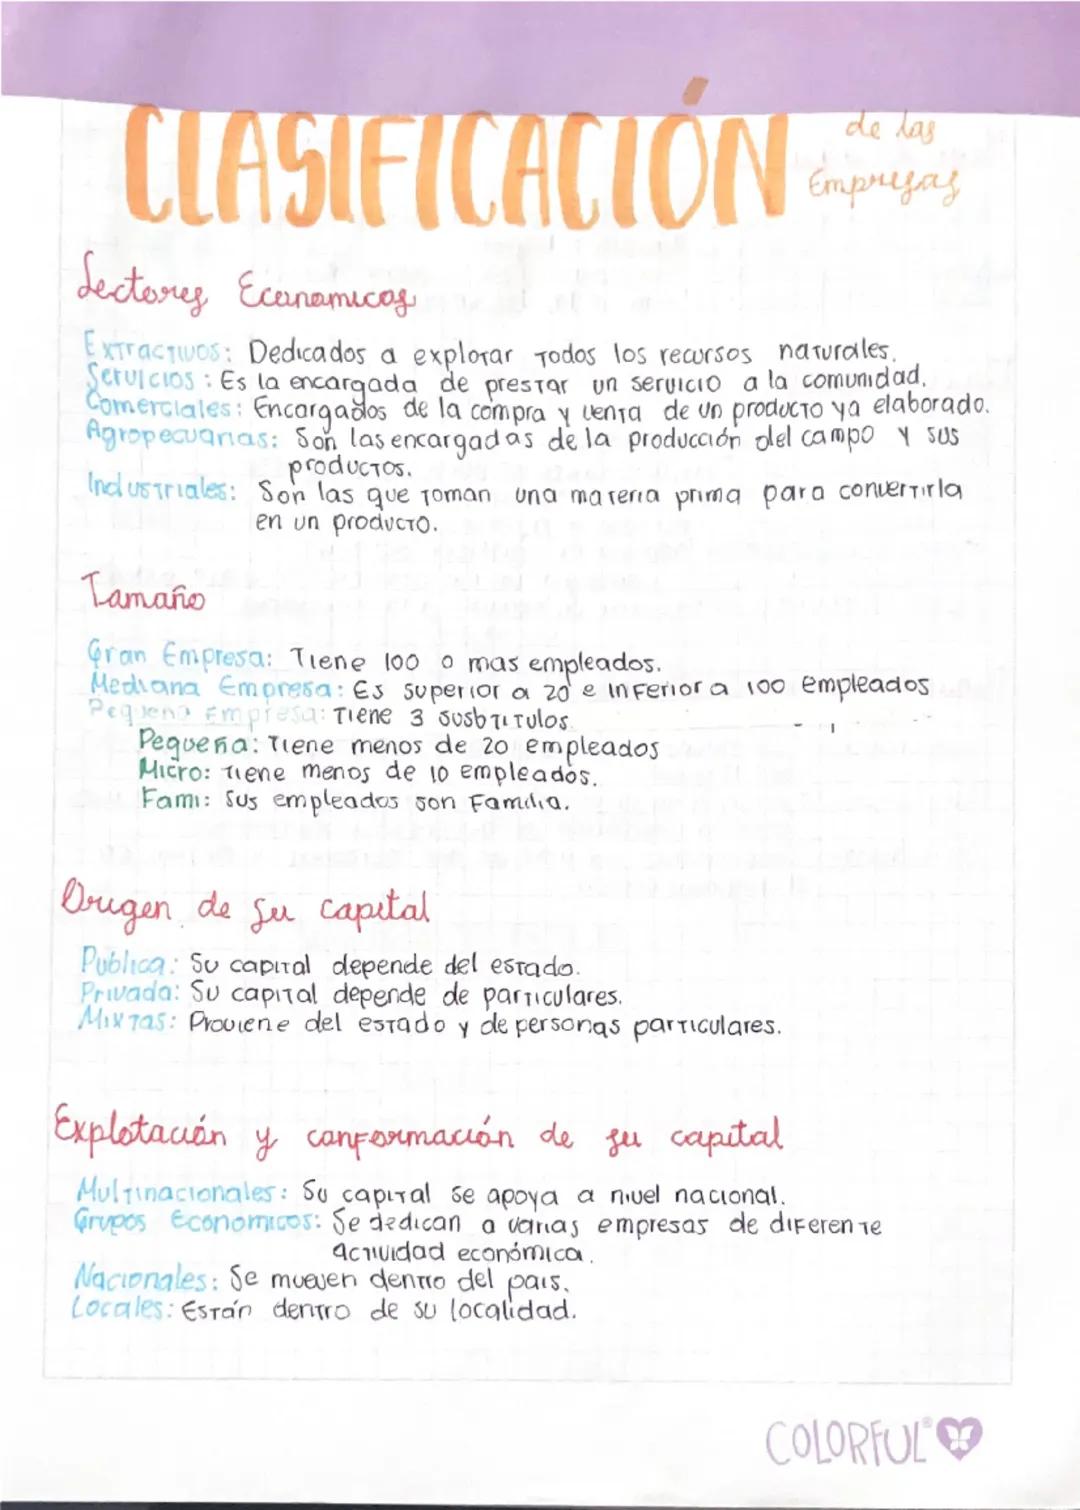 CLASIFICACIÓN de las
Empresas
Sectores Economicos
Extractivos: Dedicados a explotar todos los recursos naturales.
Servicios: Es la encargada de prestar un servicio a la comunidad.
Comerciales: Encargados de la compra y venta de un producto ya elaborado.
Agropecuarias: Son las encargadas de la producción del campo y sus
productos.
Industriales: Son las que toman una materia prima para convertirla
en un producto.
Tamaño
Gran Empresa: Tiene 100 o mas empleados.
Mediana Empresa: Es superior a 20 e inferior a 100 empleados
Pequeña Empresa: Tiene 3 susbtitulos.
Pequeña: Tiene menos de 20 empleados
Micro: Tiene menos de 10 empleados.
Fami: Sus empleados son Familia.
Origen de su capital
Publica: Su capital depende del estado.
Privada: Su capital depende de particulares.
Mixtas: Proviene del estado y de personas particulares.
Explotación y conformación de su capital
Multinacionales: Su capital se apoya a nivel nacional.
Grupos Economicos: Se dedican a varias empresas de diferente
actividad económica.
Nacionales: Se mueven dentro del pais.
Locales: Están dentro de su localidad.
COLORFUL®